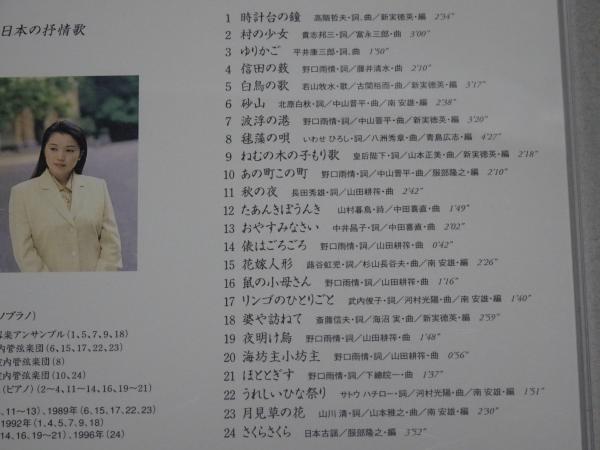 日本の抒情歌
1 時計台の鐘 高階哲夫・詞、曲／新実徳英・編 2'34"
2 村の少女 貴志邦三・詞／富永三郎・曲 3'00"
3 ゆりかご 平井康三郎・詞、曲 1'50"
4 信田の藪 野口雨情・詞／藤井清水・曲 2'10"
5 白鳥の歌 若山牧水・歌／古関裕而・曲／新実徳英・編 3'17"
6 砂山 北原白秋・詞／中山晋平・曲／南 安雄・編 2'38"
7 波浮の港 野口雨情・詞／中山晋平・曲／新実徳英・編 3'20"
8 毬藻の唄 いわせ ひろし・詞／八洲秀章・曲／青島広志・編 4'27"
9 ねむの木の子もり歌 皇后陛下・詞／山本正美・曲／新実徳英・編 2'18"
10 あの町この町 野口雨情・詞／中山晋平・曲／服部隆之・編 2'10"
11 秋の夜 長田秀雄・詞／山田耕筰・曲 2'42"
12 たあんきぽうんき 山村暮鳥・詩／中田喜直・曲 1'49"
13 おやすみなさい 中井昌子・詞／中田喜直・曲 2'02"
14 俵はごろごろ 野口雨情・詞／山田耕筰・曲 0'42"
15 花嫁人形 蕗谷虹児・詞／杉山長谷夫・曲／南 安雄・編 2'26"
16 鼠の小母さん 野口雨情・詞／山田耕筰・曲 1'16"
17 リンゴのひとりごと 武内俊子・詞／河村光陽・曲／南 安雄・編 1'40"
18 婆や訪ねて 斎藤信夫・詞／海沼 実・曲／新実徳英・編 2'59"
19 夜明け烏 野口雨情・詞／山田耕筰・曲 1'48"
20 海坊主小坊主 野口雨情・詞／山田耕筰・曲 0'56"
21 ほととぎす 野口雨情・詞／下總皖一・曲 1'37"
22 うれしいひな祭り サトウ ハチロー・詞／河村光陽・曲／南 安雄・編 1'51"
23 月見草の花 山川 清・詞／山本雅之・曲／南 安雄・編 2'30"
24 さくらさくら 日本古謡／服部隆之・編 3'52"
ソプラノ）
楽アンサンブル（1、5、7、9、18）
内管弦楽団（6、15、17、22、23）
室内管弦楽団（8）
内管弦楽団（10、24）
（ピアノ）（2〜4、11〜14、16、19〜21）
、11〜13）、1989年（6、15、17、22、23）
1992年（1、4、5、7、9、18）
14、16、19〜21）、1996年（24）